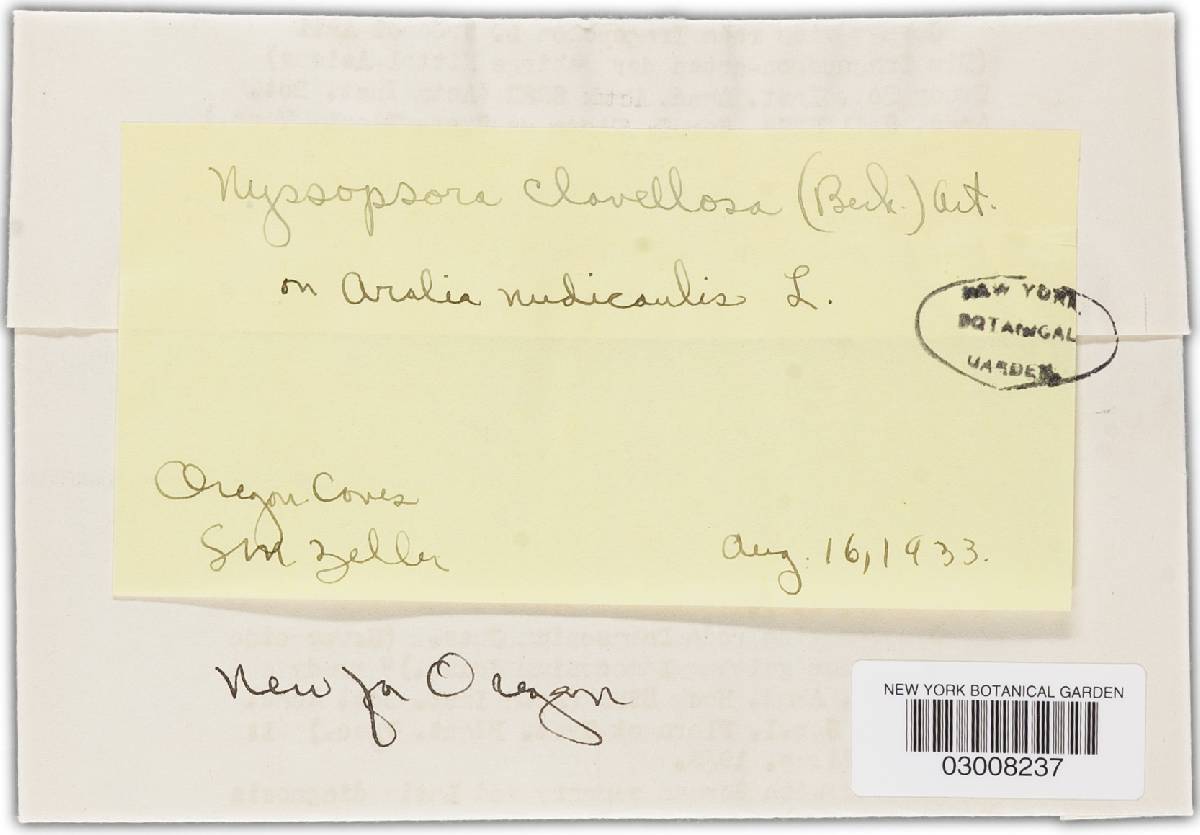 Nyssopsora clavellosa (Berk.) Art.
on Aralia nudicaulis L.
NEW YORK
BOTANICAL
GARDEN
Oregon Caves
SM Zeller Aug. 16, 1933.
New for Oregon
NEW YORK BOTANICAL GARDEN
03008237